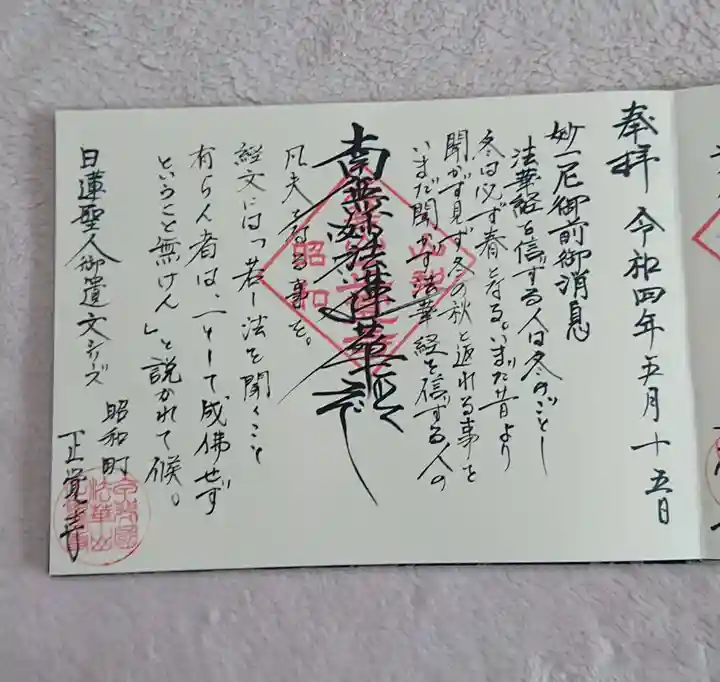 奉拝 令和四年五月十五日
妙一尼御前御消息
法華経を信ずる人は冬のごとし
冬は必ず春となる。いまだ昔より
聞かず見ず冬の秋と返れる事を
いまだ聞かず法華経を信ずる人の
南無妙法蓮華経
昭和
凡夫となる事を。
経文には「若し法を聞くこと
有らん者は、一として成佛せず
ということ無けん」と説かれて候。
日蓮聖人御遺文シリーズ
昭和町
正覚寺